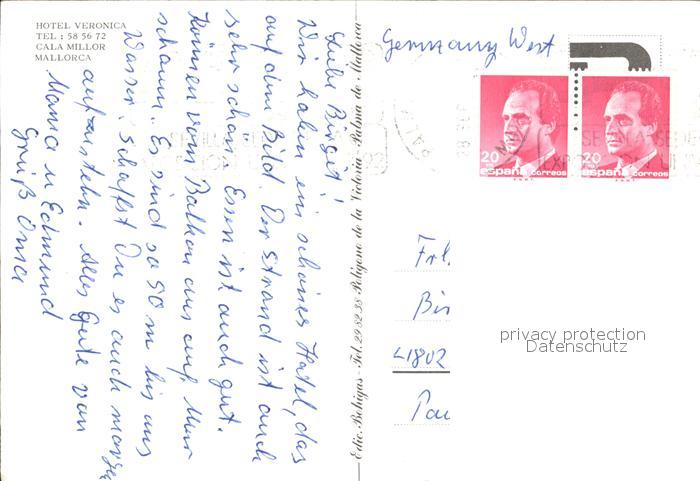 HOTEL VERONICA
TEL : 58 56 72
CALA MILLOR
MALLORCA
Liebe Birgit!
Wir haben ein schönes Hotel, das
auf dem Bild. Der Strand ist auch
sehr schön. Essen ist auch gut.
Können vom Balkon aus auf Meer
schauen. Es sind so 50 m bis ans
Wasser. Schaffst Du es auch morgens
aufzustehn. Alles Gute von
Mama u Edmund
Gruß Oma
Edic. Bohigas - Tel. 29 52 38 Polígono de la Victoria - Palma de Mallorca
Germany West
20
españa correos
20
españa correos
Frl.
Bir
41802
privacy protection
Datenschutz